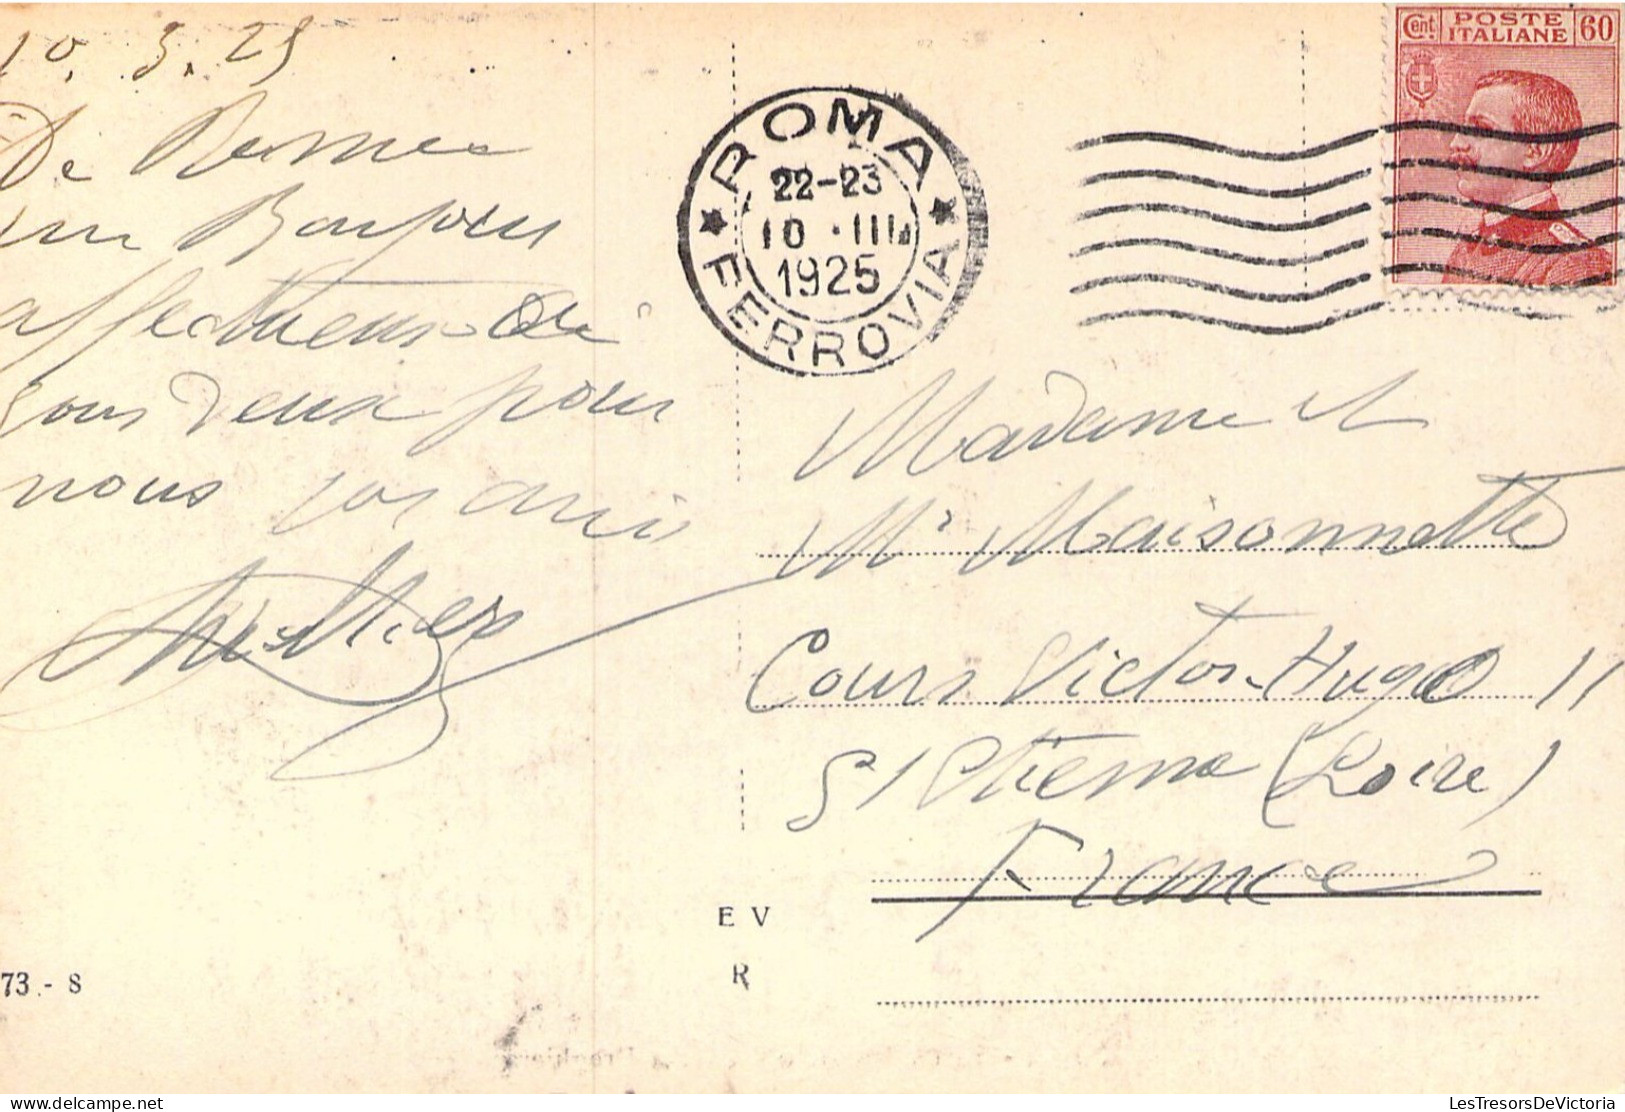 10. 3. 25
De Rome
un Bonjour
affectueux de
tous deux pour
nous vos amis
Cent. POSTE ITALIANE 60
ROMA FERROVIA
22-23
10 • III
1925
Madame et
Mr Maisonnette
Cours Victor-Hugo 11
St Etienne (Loire)
France
E V
R
73 - 8
LesTresorsDeVictoria